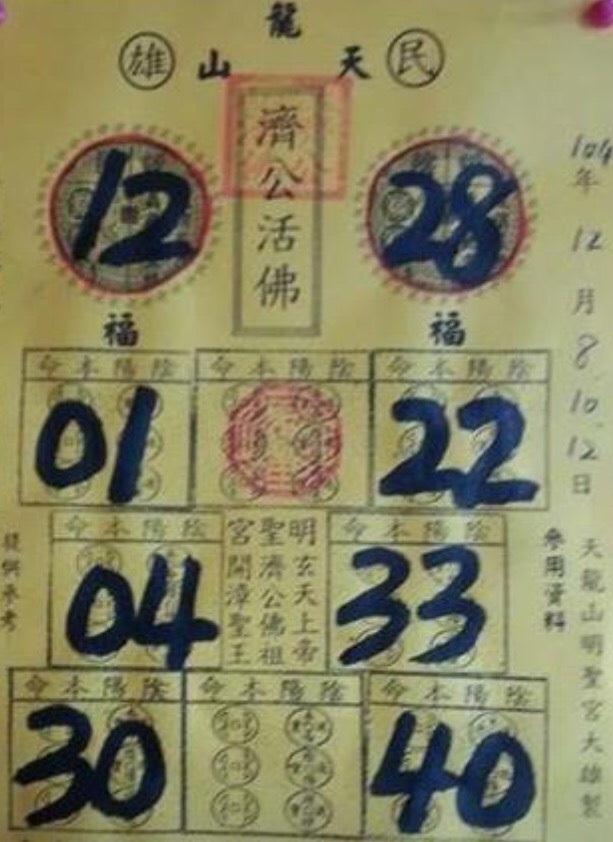 龍
雄 山 天 民
濟公活佛
12 28
福 福
104年12月8.10.12日
命本陽陰 命本陽陰 命本陽陰
01 22
命本陽陰 命本陽陰
04 33
明玄天上帝
聖濟公佛祖
宮開漳聖王
提供參考
參用資料
命本陽陰 命本陽陰 命本陽陰
30 40
天龍山明聖宮大雄製